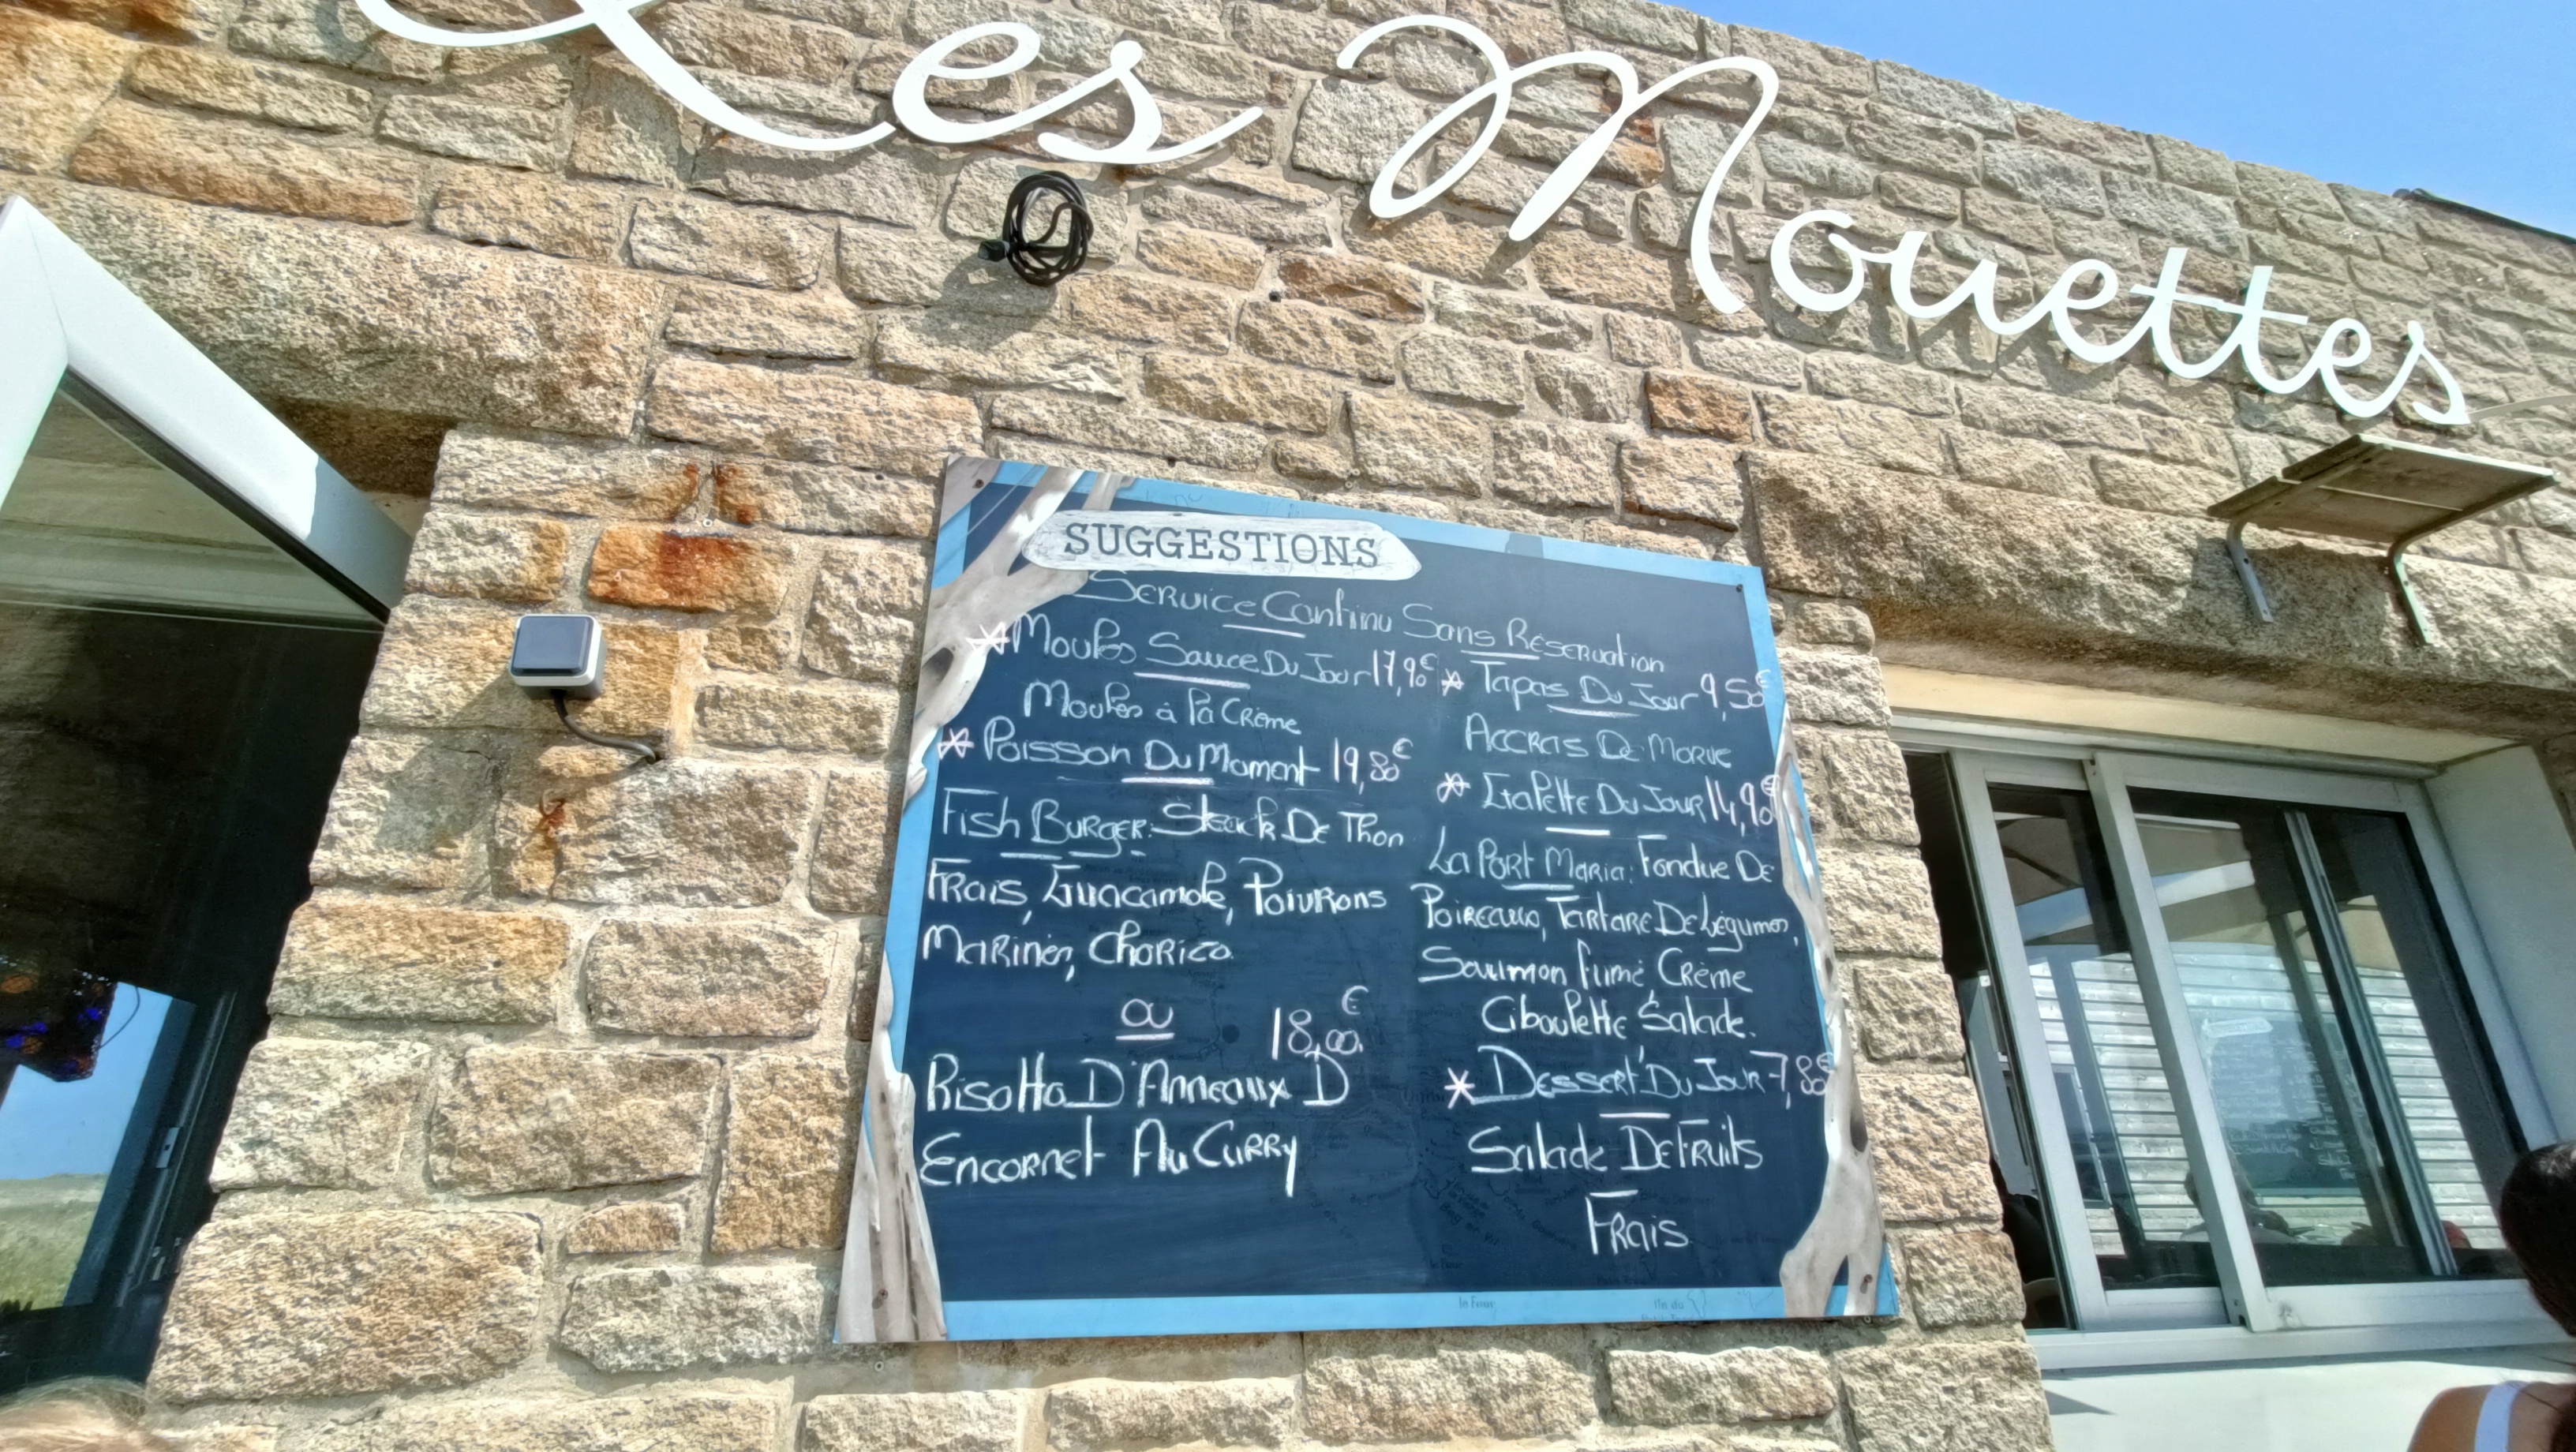 Les Mouettes
SUGGESTIONS
Service Continu Sans Réservation
* Moules Sauce Du Jour 17,90€
Moules à la Crème
* Poisson Du Moment 19,80€
Fish Burger: Steack De Thon
Frais, Guacamole, Poivrons
Marinés, Chorizo.
ou 18,00€
Risotto D'Anneaux D
Encornet Au Curry
* Tapas Du Jour 9,50€
Accras De Morue
* Galette Du Jour 14,90€
La Port Maria: Fondue De
Poireaux, Tartare De Légumes,
Saumon fumé, Crème
Ciboulette, Salade.
* Dessert Du Jour 7,80€
Salade De Fruits
Frais